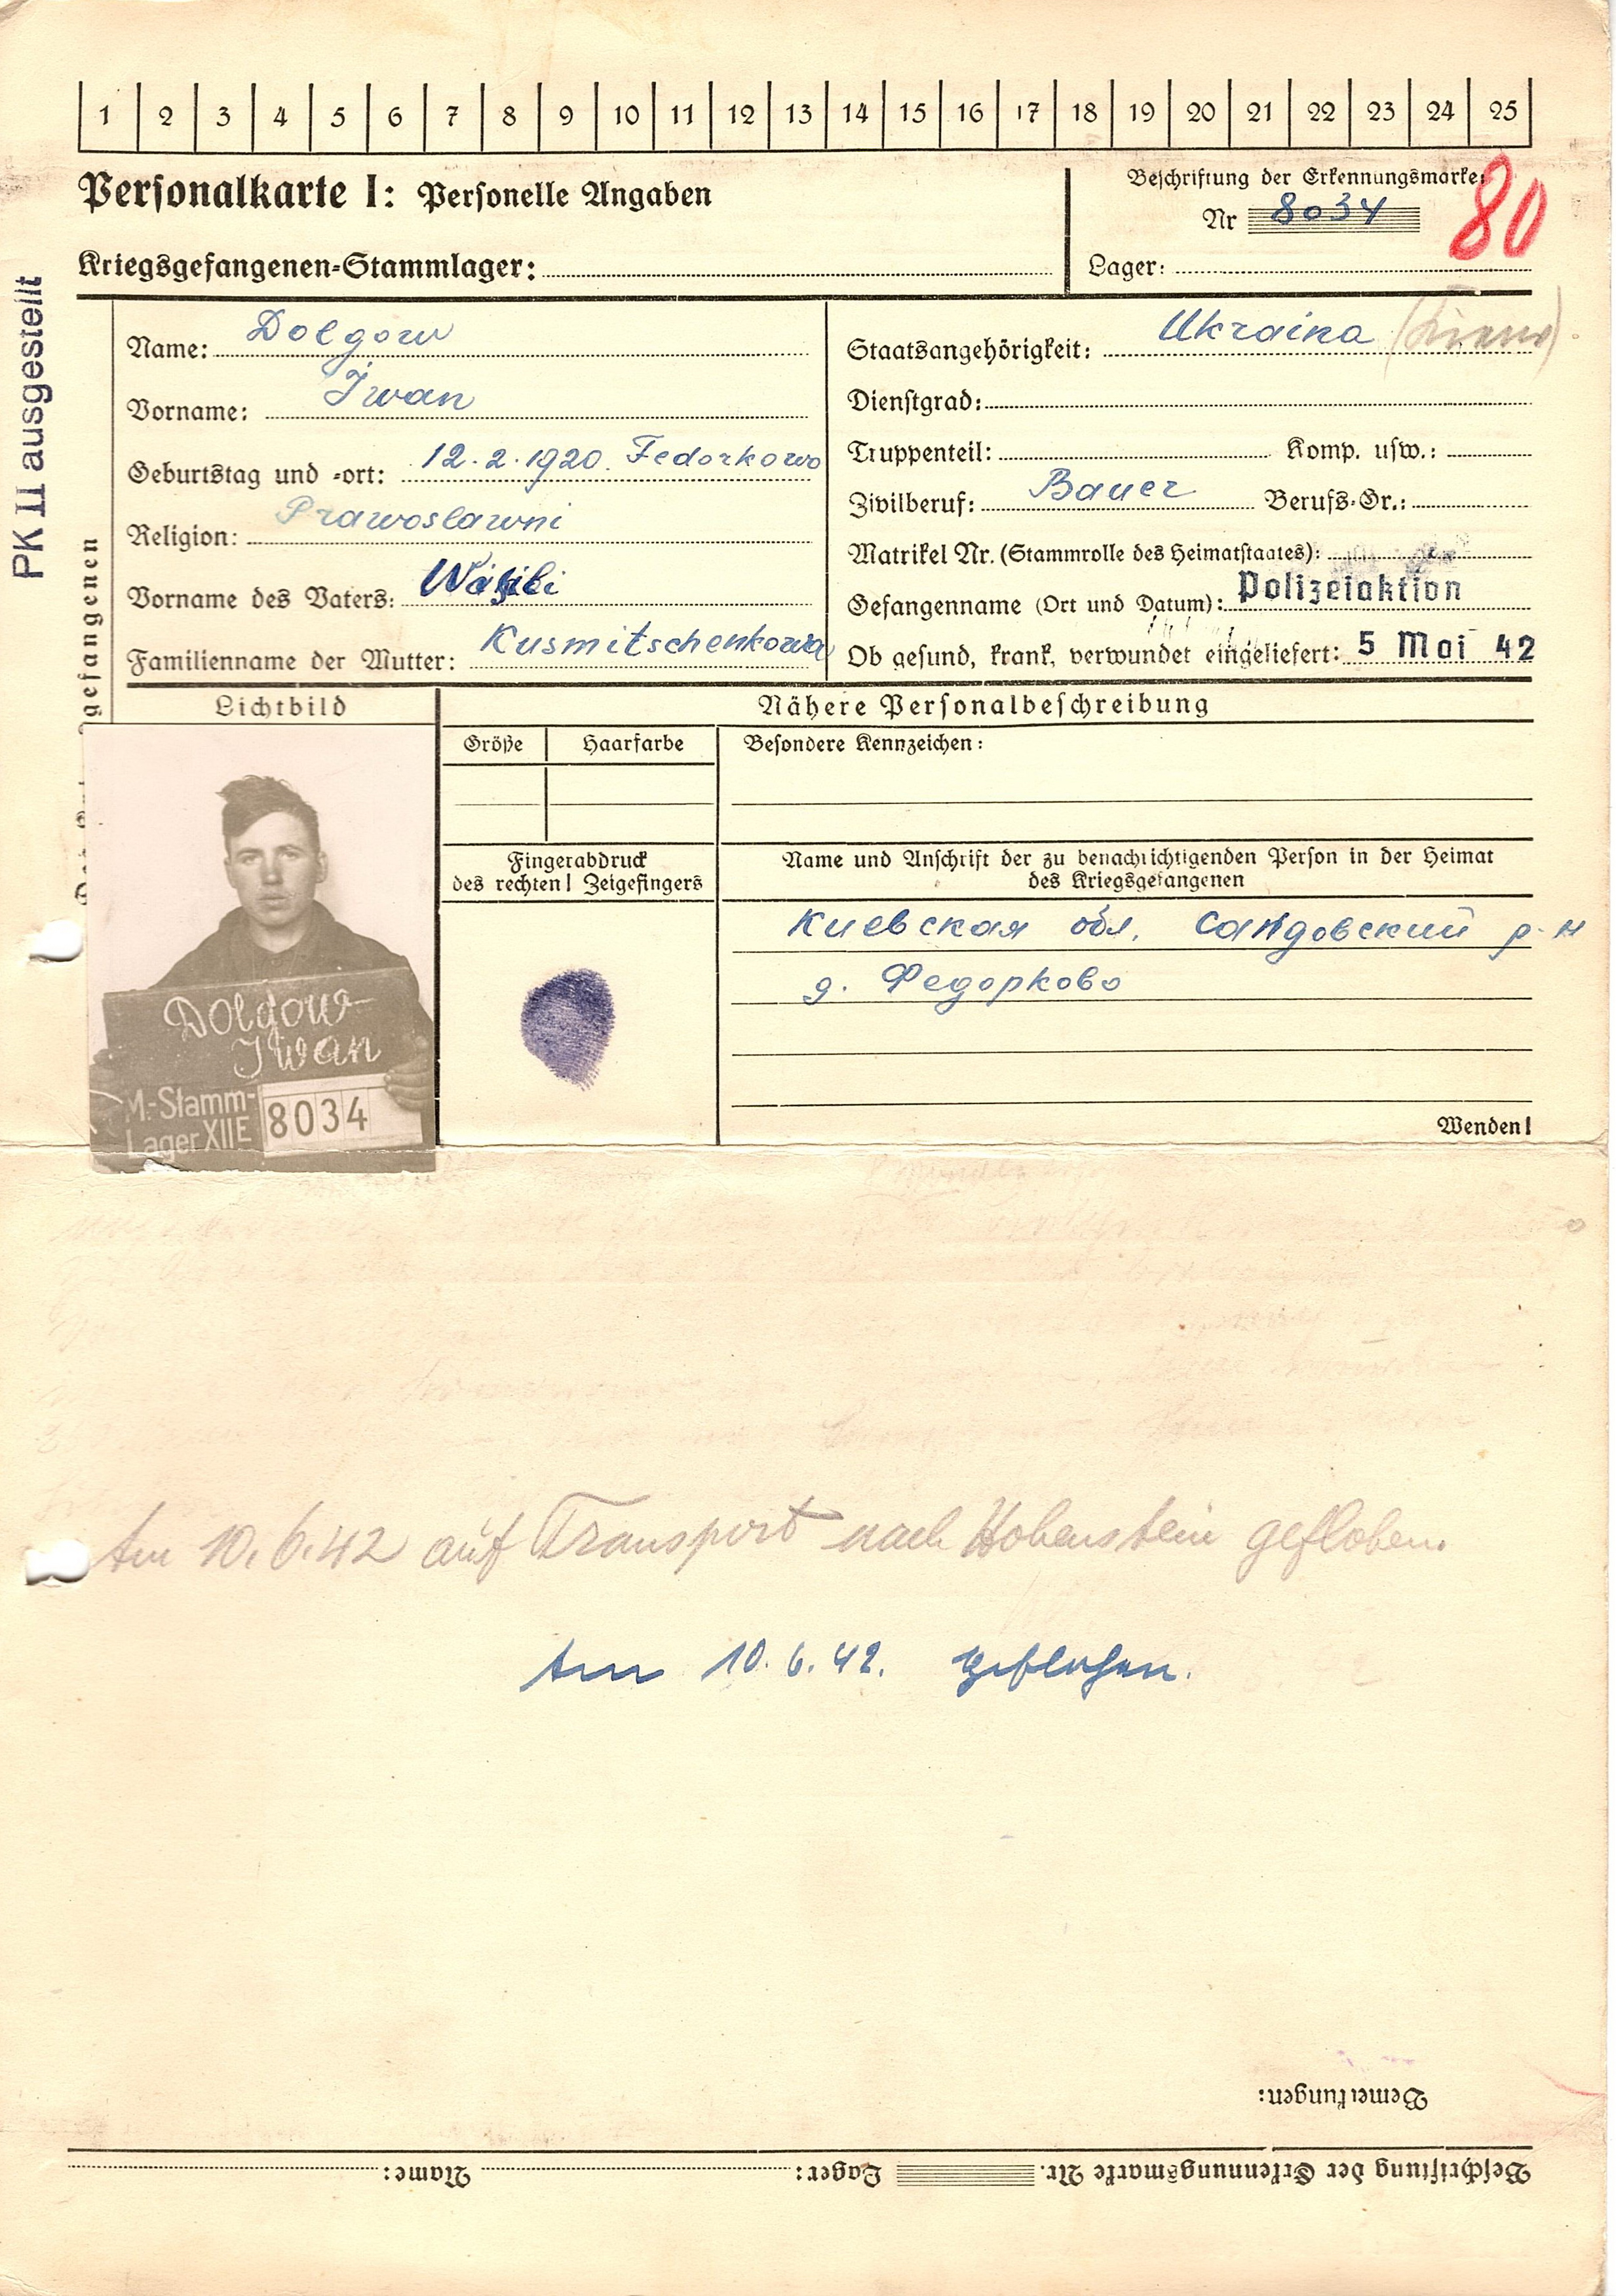 1 2 3 4 5 6 7 8 9 10 11 12 13 14 15 16 17 18 19 20 21 22 23 24 25
Personalkarte I: Personelle Angaben
Kriegsgefangenen-Stammlager:
Beschriftung der Erkennungsmarke
Nr 8034
80
Lager:
PK II ausgestellt
gefangenen
Name: Dolgow
Vorname: Iwan
Geburtstag und -ort: 12.2.1920. Fedorkowo
Religion: Prawoslawni
Vorname des Vaters: Wasili
Familienname der Mutter: Kusmitschenkowa
Staatsangehörigkeit: Ukraina
Dienstgrad:
Truppenteil: Komp. usw.:
Zivilberuf: Bauer Berufs-Gr.:
Matrikel Nr. (Stammrolle des Heimatstaates):
Gefangenname (Ort und Datum): Polizeiaktion
Ob gesund, krank, verwundet eingeliefert: 5 Mai 42
Lichtbild
Nähere Personalbeschreibung
Größe Haarfarbe Besondere Kennzeichen:
Fingerabdruck
des rechten! Zeigefingers
Name und Anschrift der zu benachrichtigenden Person in der Heimat
des Kriegsgefangenen
Киевская обл. р-н
д. Федорково
Dolgow
Iwan
M.-Stamm-
Lager XIIE 8034
Wenden!
Am 10.6.42 auf Transport nach Hohenstein geflohen.
Am 10.6.42. geflohen.
Bemerkungen:
Beschriftung der Erkennungsmarke Nr. Lager: Name: